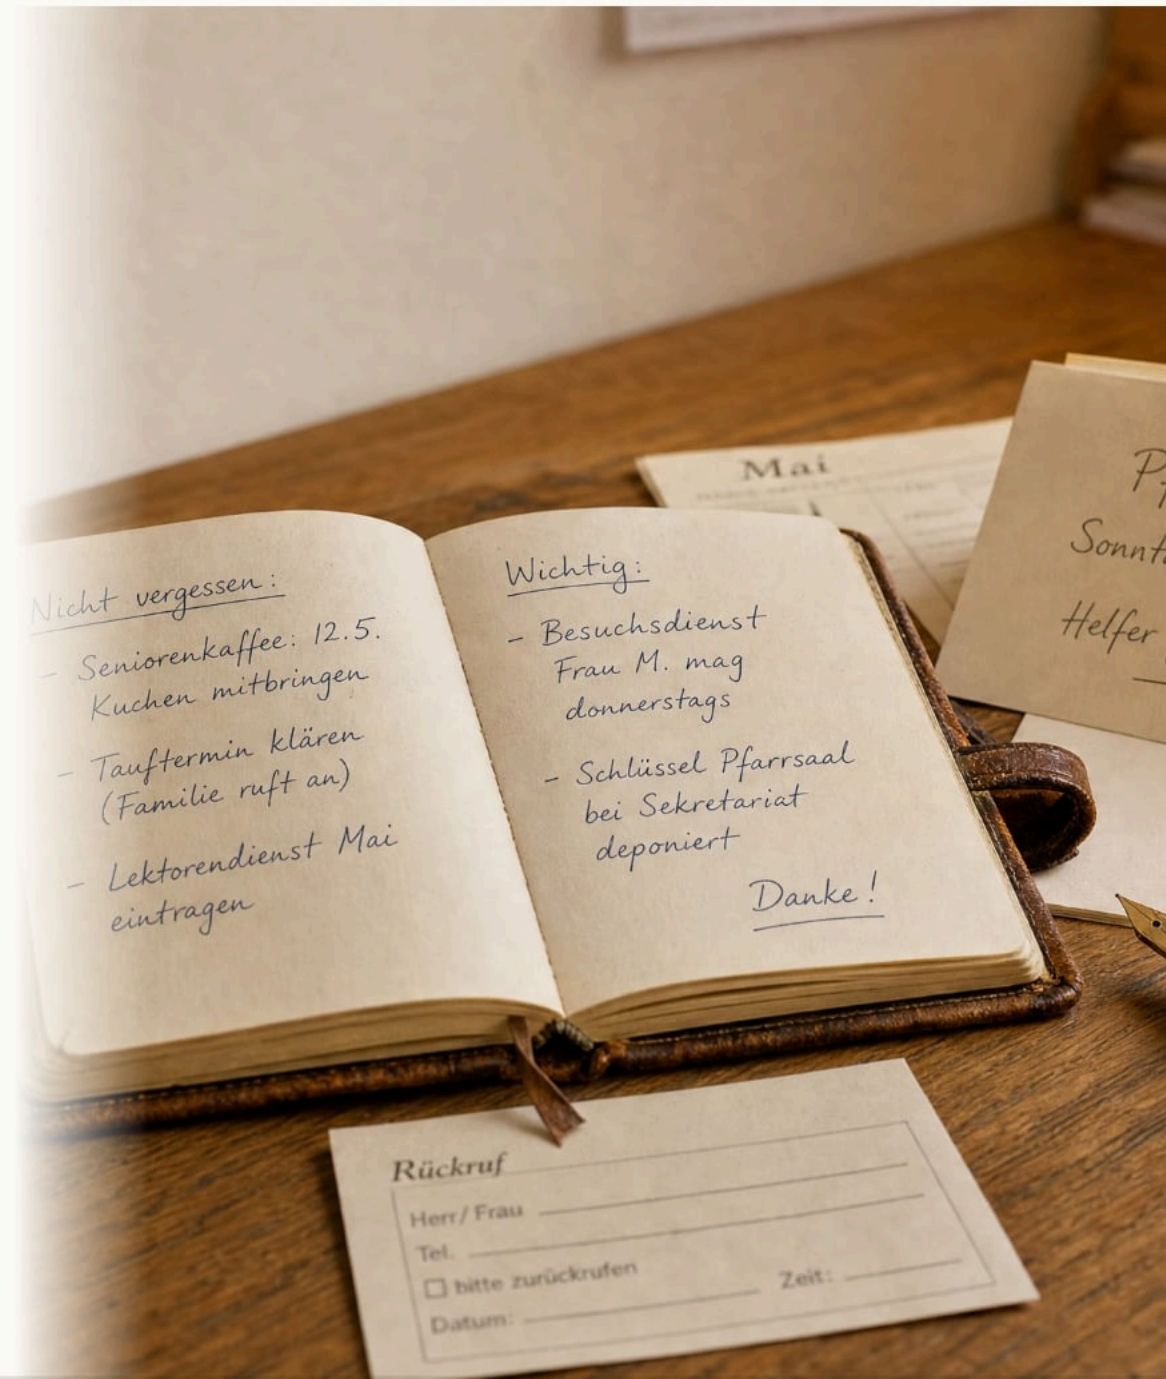 Nicht vergessen:
- Seniorenkaffee: 12.5.
Kuchen mitbringen
- Tauftermin klären
(Familie ruft an)
- Lektorendienst Mai
eintragen
Wichtig:
- Besuchsdienst
Frau M. mag
donnerstags
- Schlüssel Pfarrsaal
bei Sekretariat
deponiert
Danke!
Mai
Helfer
Rückruf
Herr/Frau
Tel.
bitte zurückrufen
Datum: Zeit: